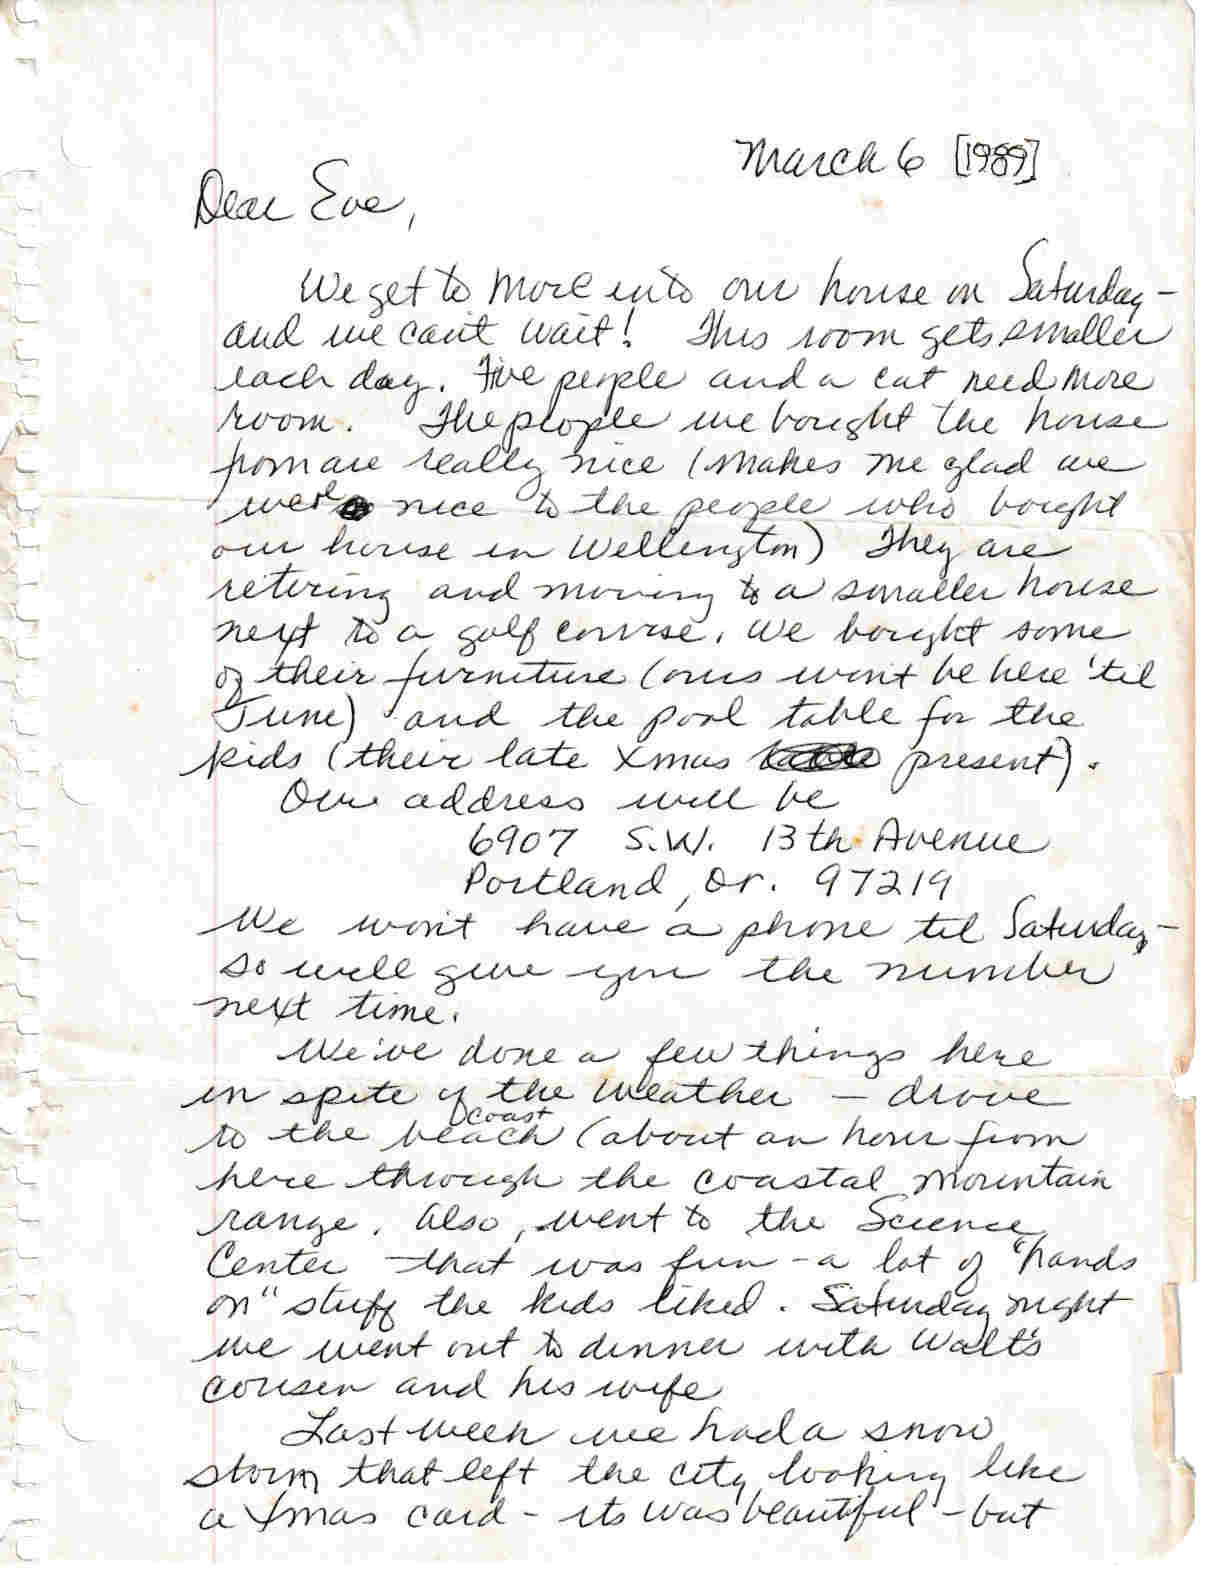 March 6 [1989]
Dear Eve,
We get to move into our house on Saturday –
and we can't wait! This room gets smaller
each day. Five people and a cat need more
room. The people we bought the house
from are really nice (makes me glad we
were nice to the people who bought
our house in Wellington) They are
retiring and moving to a smaller house
next to a golf course. We bought some
of their furniture (ours won't be here 'til
June) and the pool table for the
kids (their late Xmas present).
Our address will be
6907 S.W. 13th Avenue
Portland, Or. 97219
We won't have a phone til Saturday –
so will give you the number
next time.
We've done a few things here
in spite of the weather – drove
coast
to the beach (about an hour from
here through the coastal mountain
range. Also, went to the Science
Center – that was fun – a lot of "hands
on" stuff the kids liked. Saturday night
we went out to dinner with Walt's
cousin and his wife
Last week we had a snow
storm that left the city looking like
a Xmas card – its was beautiful – but